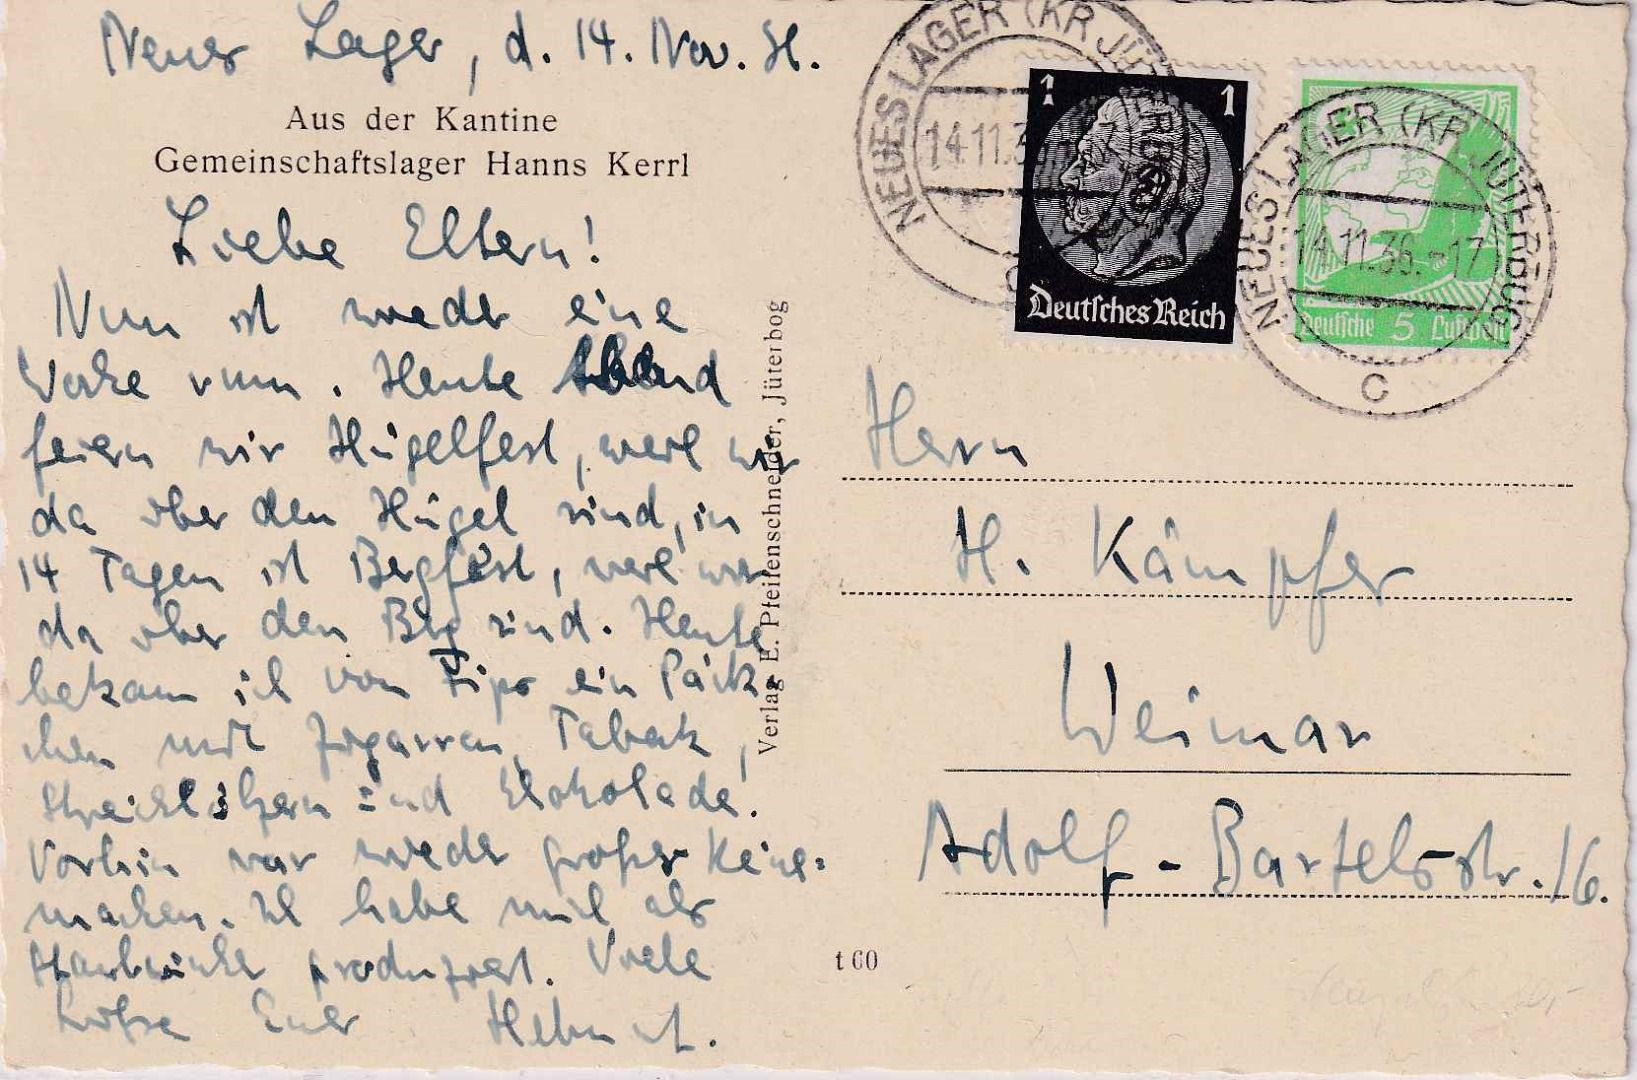 Neues Lager, d. 14. Nov. 36.
Aus der Kantine
Gemeinschaftslager Hanns Kerrl
Liebe Eltern!
Nun ist wieder eine
Woche rum. Heute Abend
feiern wir Hügelfest, weil wir
da über den Hügel sind, in
14 Tagen ist Bergfest, weil wir
da über den Berg sind. Heute
bekam ich von Fips ein Päck-
chen mit Zigarren, Tabak,
Streichhölzern und Schokolade.
Vorhin war wieder großes Reine-
machen. Ich habe mich als
produziert. Viele
Grüße Euer Helmut.
Verlag E. Pfeifenschneider, Jüterbog
NEUES LAGER (KR JÜTERBOG)
14.11.36
1 1
Deutsches Reich
NEUES LAGER (KR JÜTERBOG)
14.11.36.-17
C
Deutsche 5 Luftpost
Herrn
H. Kämpfer
Weimar
Adolf-Bartels-str. 16.
t 60